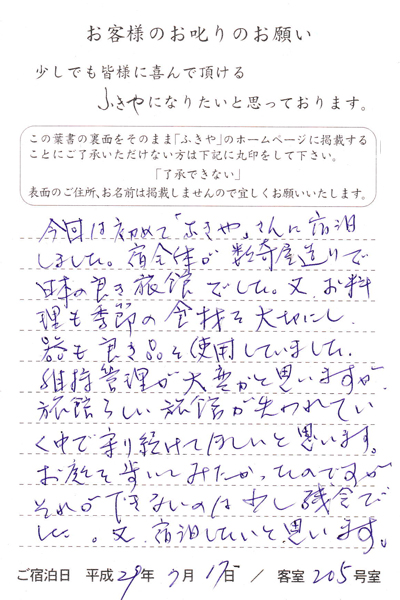 お客様のお叱りのお願い
少しでも皆様に喜んで頂ける
ふきやになりたいと思っております。
この葉書の裏面をそのまま「ふきや」のホームページに掲載する
ことにご了承いただけない方は下記に丸印をして下さい。
「了承できない」
表面のご住所、お名前は掲載しませんので宜しくお願いいたします。
今回は初めて「ふきや」さんに宿泊
しました。宿全体が数奇屋造りで
日本の良き旅館でした。又、お料
理も季節の食材を大切にし、
器も良き品を使用していました。
維持管理が大変かと思いますが、
旅館らしい旅館が失われてい
く中で守り続けてほしいと思います。
お庭を歩いてみたかったのですが
それができないのは少し残念で
した。又、宿泊したいと思います。
ご宿泊日 平成29年 7月 17日 / 客室 205号室